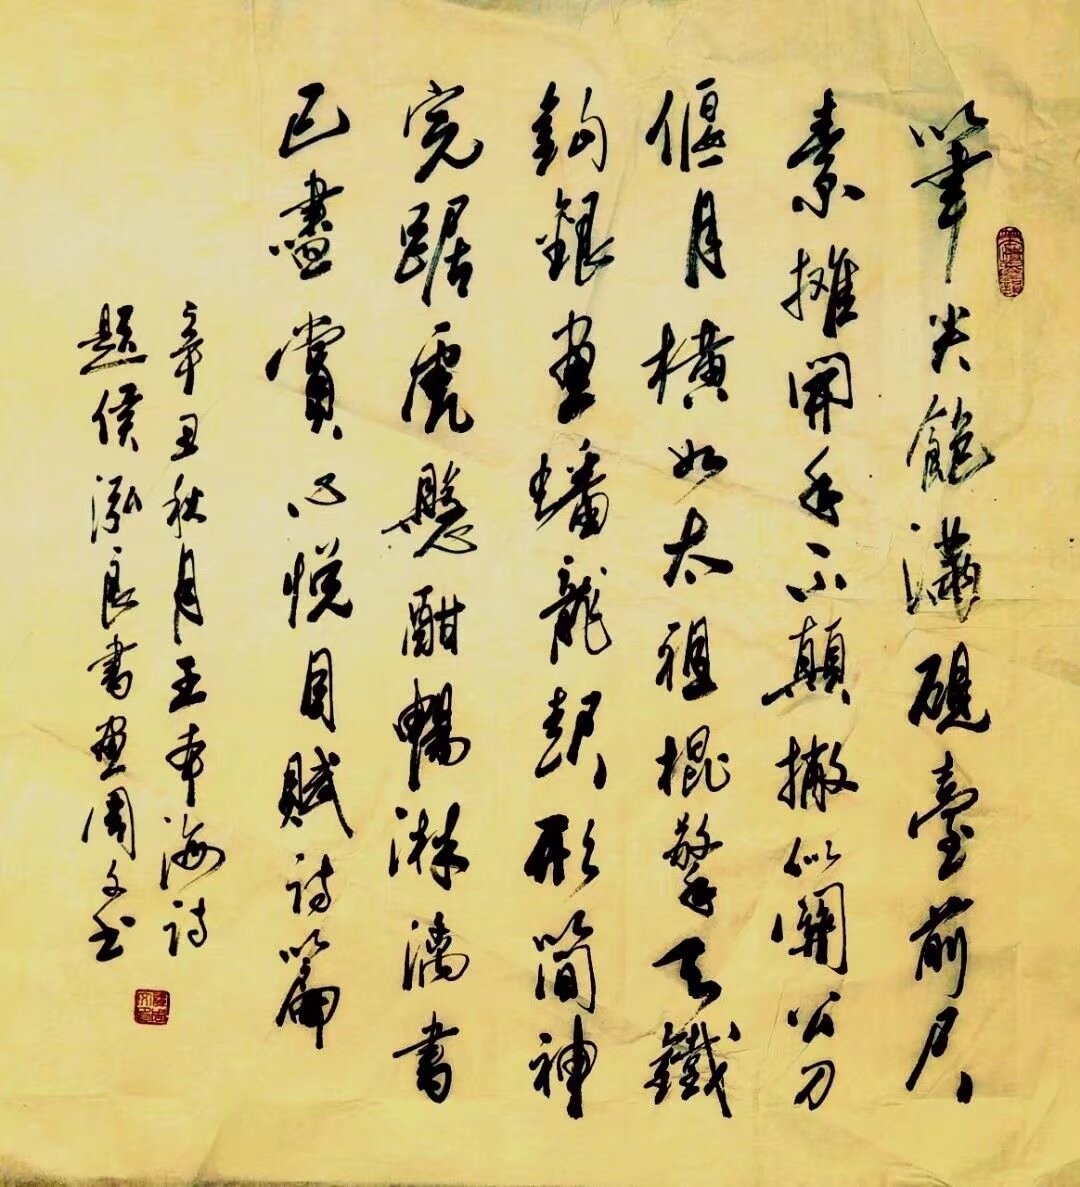 筆尖飽滿硯臺前尺
素攤開手不顛撇似關公刀
偃月橫如太祖棍擎天鐵
鈎銀畫蟠龍起形簡神
完踞虎懸酣暢淋漓書
已盡賞心悅目賦詩篇
辛丑秋月王本海詩
題侯泓良書畫周文书